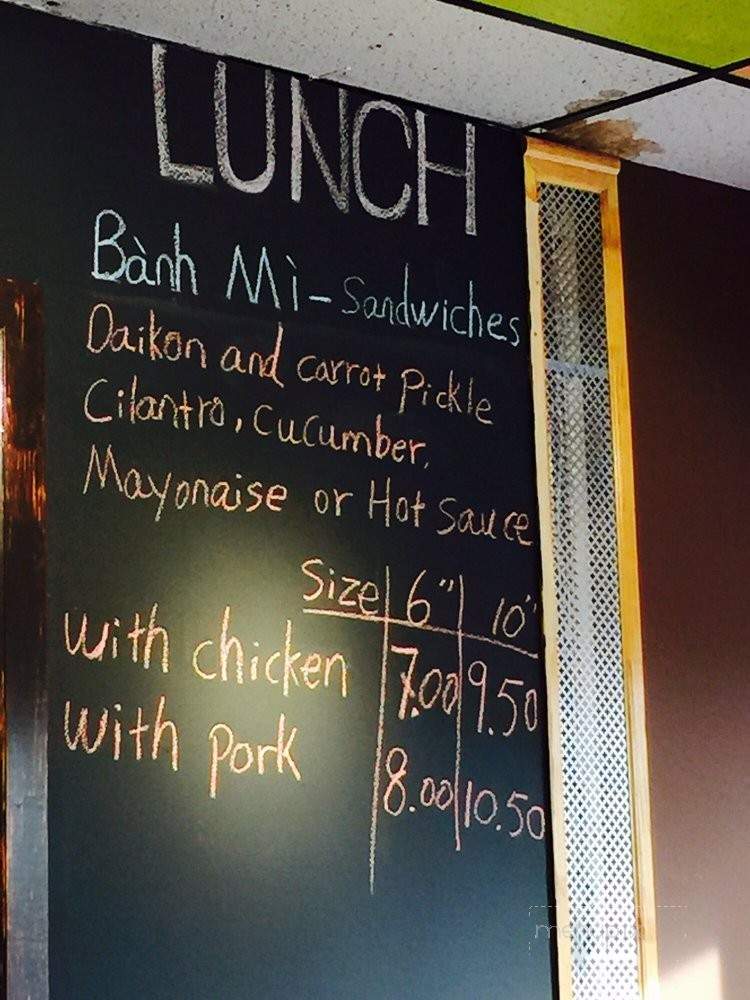 LUNCH
Bành Mì - Sandwiches
Daikon and carrot Pickle
Cilantro, Cucumber,
Mayonaise or Hot Sauce
Size 6" 10"
with chicken 7.00 9.50
with pork 8.00 10.50